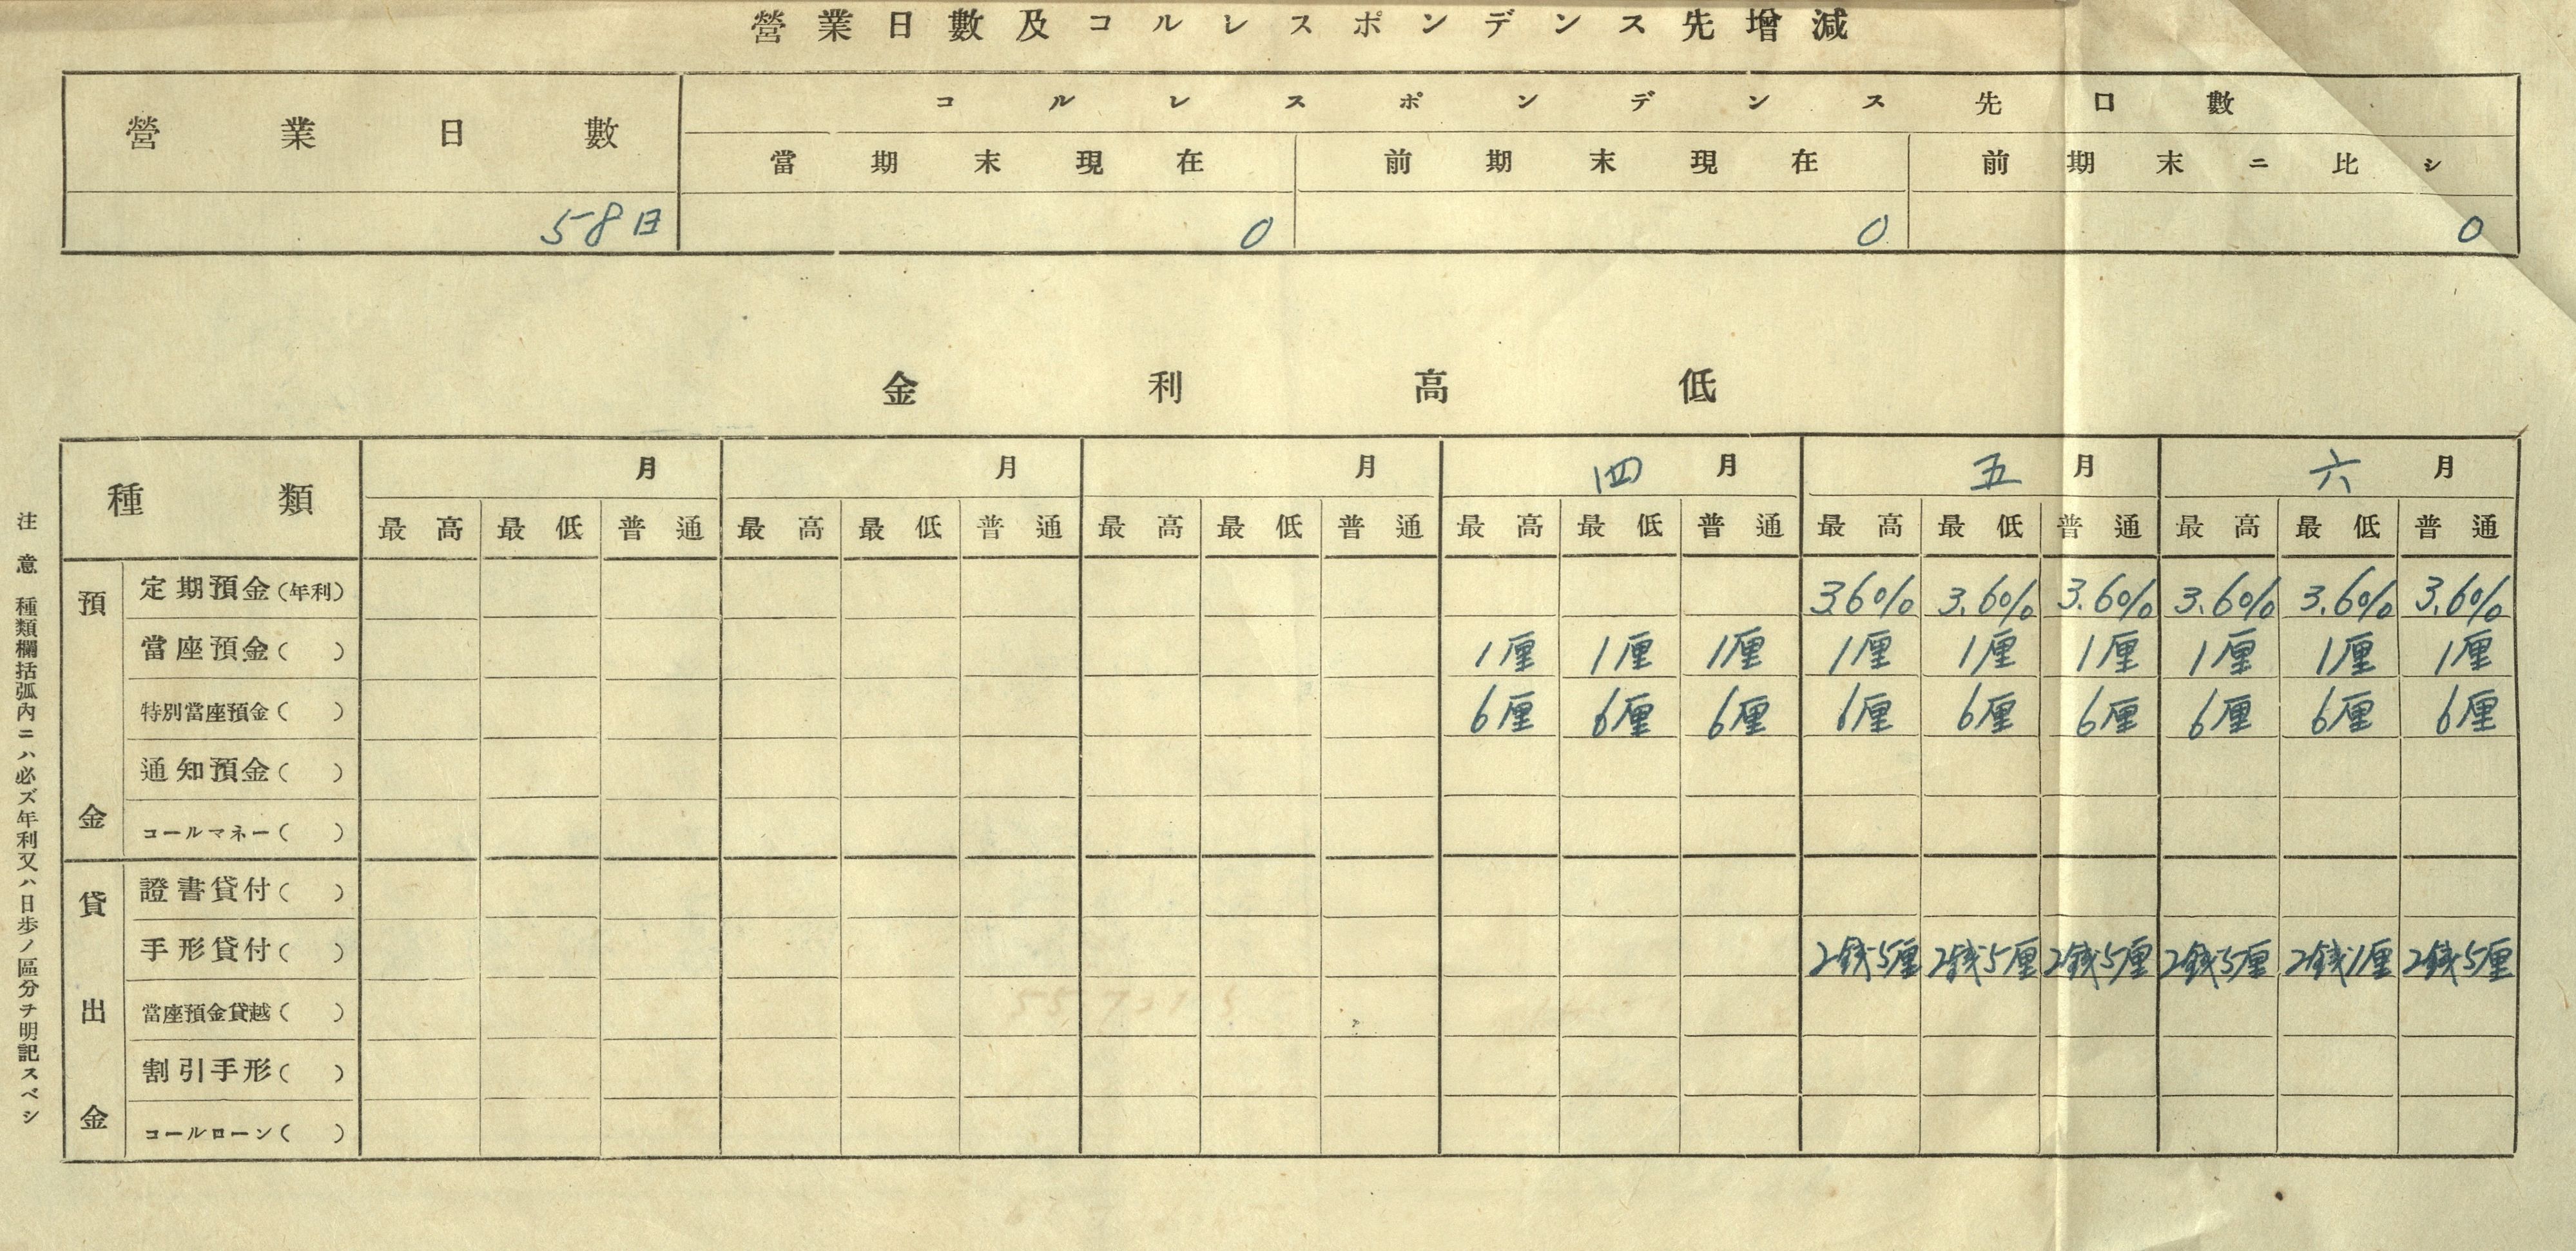 營業日數及コルレスポンデンス先增減
營業日數
コルレスポンデンス先口數
當期末現在 前期末現在 前期末ニ比シ
58日 0 0 0
金利高低
種類 月 月 月 四月 五月 六月
最高 最低 普通 最高 最低 普通 最高 最低 普通 最高 最低 普通 最高 最低 普通 最高 最低 普通
預金
定期預金(年利) 3.60% 3.60% 3.60% 3.60% 3.60% 3.60%
當座預金( ) 1厘 1厘 1厘 1厘 1厘 1厘 1厘 1厘 1厘
特別當座預金( ) 6厘 6厘 6厘 6厘 6厘 6厘 6厘 6厘 6厘
通知預金( )
コールマネー( )
貸出金
證書貸付( )
手形貸付( ) 2錢5厘 2錢5厘 2錢5厘 2錢5厘 2錢1厘 2錢5厘
當座預金貸越( )
割引手形( )
コールローン( )
注意 種類欄括弧內ニハ必ズ年利又ハ日步ノ區分ヲ明記スベシ